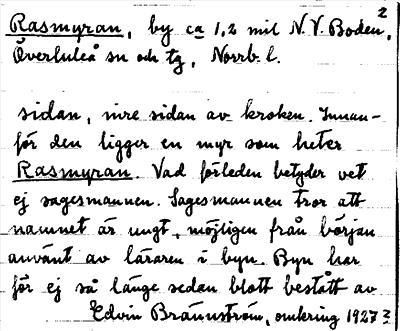 2
Rasmyran, by ca 1,2 mil N.V. Boden,
Överluleå sn och tg, Norrb. l.
sidan, inre sidan av kroken. Innan-
för den ligger en myr som heter
Rasmyran. Vad förleden betyder vet
ej sagesmannen. Sagesmannen tror att
namnet är ungt, möjligen från början
använt av läraren i byn. Byn har
för ej så länge sedan blott bestått av
Edvin Brännström, omkring 1927?